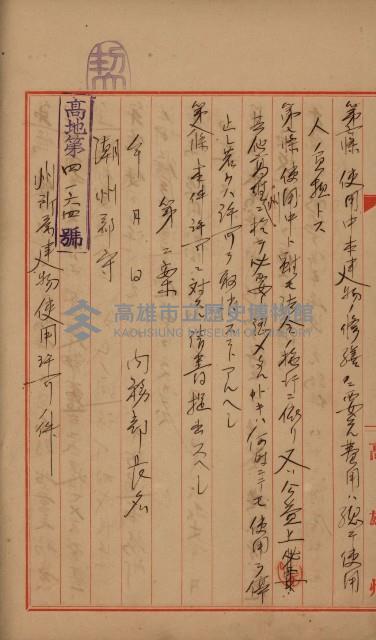 第六條 使用中本建物修繕ニ要スル費用ハ總テ使用
人ノ負担トス
第七條 使用中ト雖モ法令ノ施行ニ依リ又ハ公益上必要
其他高雄州ニ於テ必要ト認メタルトキハ何時ニテモ使用ヲ停
止シ若クハ許可ヲ取消スコトアルヘシ
第八條 本件許可ニ対シ請書ヲ提出スヘシ
第二案
年 月 日 内務部長名
潮州郡守
州所属建物使用許可ノ件
高地第四一六四號
高雄州
高雄市立歷史博物館
KAOHSIUNG MUSEUM OF HISTORY